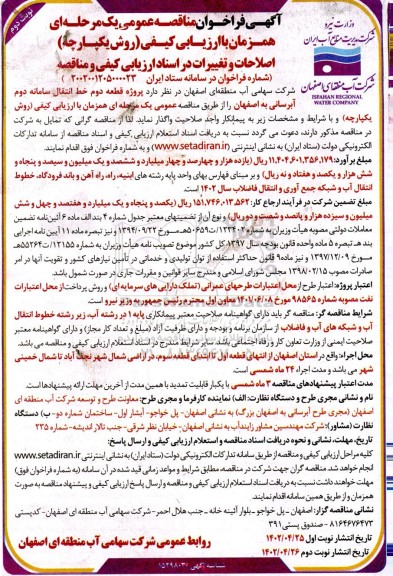 نوبت دوم
وزارت نیرو
شرکت مدیریت منابع آب ایران
شرکت آب منطقه‌ای اصفهان
ISFAHAN REGIONAL
WATER COMPANY
آگهی فراخوان مناقصه عمومی یک مرحله‌ای
همزمان با ارزیابی کیفی (روش یکپارچه)
اصلاحات و تغییرات در اسناد ارزیابی کیفی و مناقصه
(شماره فراخوان در سامانه ستاد ایران
شرکت سهامی آب منطقه‌ای اصفهان در نظر دارد پروژه قطعه دوم خط انتقال سامانه دوم
آبرسانی به اصفهان را از طریق مناقصه عمومی یک مرحله ای همزمان با ارزیابی کیفی (روش
یکپارچه) و با شرایط و مشخصات زیر به پیمانکار واجد صلاحیت واگذار نماید. لذا از مناقصه گرانی که تمایل به شرکت
در مناقصه مذکور دارند، دعوت می گردد نسبت به دریافت اسناد استعلام ارزیابی کیفی و اسناد مناقصه از سامانه تدارکات
الکترونیکی دولت (ستاد ایران) به نشانی اینترنتی (www.setadiran.ir) و به شماره فراخوان فوق اقدام نمایند.
مبلغ برآورد: ۱۱,۴۰۴,۶۰۱,۳۵۶,۱۷۹ ریال (یازده هزار و چهارصد و چهار میلیارد و ششصد و یک میلیون و سیصد و پنجاه و
شش هزار و یکصد و هفتاد و نه ریال) و بر مبنای فهارس بهای واحد پایه رشته های ابنیه، راه، راه آهن و باند فرودگاه، خطوط
انتقال آب و شبکه جمع آوری و انتقال فاضلاب سال ۱۴۰۲ است.
مبلغ تضمین شرکت در فرآیند ارجاع کار: ۱۵۱,۷۴۶,۰۱۳,۵۶۲ ریال (یکصد و پنجاه و یک میلیارد و هفتصد و چهل و شش
میلیون و سیزده هزار و پانصد و شصت و دو ریال) و نوع آن از تضمینهای معتبر جدول شماره ۴ بند الف ماده ۶ آئین‌نامه تضمین
معاملات دولتی مصوبه هیأت وزیران به شماره ۱۲۳۴۰۲/ت۵۰۶۵۹هـ مورخ ۱۳۹۴/۰۹/۲۲ و نیز تبصره ماده ۱۱ آیین نامه اجرایی
بند هـ تبصره ۵ ماده واحده قانون بودجه سال ۱۳۹۷ کل کشور موضوع تصویب نامه هیأت وزیران به شماره
مورخ ۱۳۹۷/۰۹/۱۲ و نیز ماده ۹ قانون حداکثر استفاده از توان تولیدی و خدماتی در تأمین نیازهای کشور و تقویت آنها در امر
صادرات مصوب ۱۳۹۸/۰۲/۱۵ مجلس شورای اسلامی و مندرج سایر قوانین و مقررات جاری در صورت شمول باشد.
اعتبار پروژه: اعتبار طرح از محل اعتبارات طرحهای عمرانی (تملک دارایی های سرمایه ای) و روش پرداخت از محل اعتبارات
نفت مصوبه شماره ۹۸۵۶۵ مورخ ۱۴۰۱/۰۶/۰۸ معاون اول محترم رئیس جمهور به وزیر نیرو است.
شرایط مناقصه گر: مناقصه گر باید دارای گواهینامه صلاحیت معتبر پیمانکاری پایه ۱ در رشته آب، زیر رشته خطوط انتقال
آب و شبکه های آب و فاضلاب از سازمان برنامه و بودجه و دارای ظرفیت آزاد (مبلغ و تعداد کار مجاز) و دارای گواهینامه معتبر
صلاحیت ایمنی از وزارت تعاون کار و رفاه اجتماعی باشد. سایر شرایط مندرج در اسناد استعلام ارزیابی کیفی و مناقصه می باشد.
محل اجرا: واقع در استان اصفهان از انتهای قطعه اول تا ابتدای قطعه سوم، در اراضی شمال شهر نجف آباد تا شمال خمینی
شهر می باشد و مدت اجراء ۲۴ ماه شمسی است.
مدت اعتبار پیشنهادهای مناقصه ۳ ماه شمسی با یکبار قابلیت تمدید با همین مدت از آخرین مهلت ارائه پیشنهادها است.
نام و نشانی مجری طرح و دستگاه نظارت: الف) نماینده کارفرما و مجری طرح: معاونت طرح و توسعه شرکت آب منطقه ای
اصفهان (مجری طرح آبرسانی به اصفهان بزرگ) به نشانی اصفهان- پل خواجو- آبشار اول- ساختمان شماره دو- ب) دستگاه
نظارت (مشاور): شرکت مهندسین مشاور زایندآب به نشانی اصفهان- خیابان نظر شرقی- جنب تالار اندیشه- شماره ۲۳۵
تاریخ، مهلت، نشانی و نحوه دریافت اسناد مناقصه و استعلام ارزیابی کیفی و ارسال پاسخ:
کلیه مراحل ارزیابی کیفی و مناقصه از طریق سامانه تدارکات الکترونیکی دولت (ستاد ایران) به نشانی اینترنتی www.setadiran.ir
انجام خواهد شد. مناقصه گران جهت شرکت در مناقصه، مطابق شرایط و مواعد زمانی قید شده در آن سامانه (به شماره فراخوان فوق)
مهلت خواهند داشت نسبت به دریافت اسناد ارزیابی کیفی و مناقصه و ارسال پاسخ ارزیابی کیفی و پیشنهاد مناقصه به صورت
همزمان و از طریق همین سامانه اقدام نمایند.
نشانی مناقصه گزار: اصفهان - پل خواجو - بلوار آئینه خانه - جنب هلال احمر- شرکت سهامی آب منطقه ای اصفهان- کدپستی
۸۱۶۴۶۷۶۴۷۳ - صندوق پستی ۳۹۱
تاریخ انتشار نوبت اول ۱۴۰۲/۰۴/۲۵
تاریخ انتشار نوبت دوم ۱۴۰۲/۰۴/۲۶
روابط عمومی شرکت سهامی آب منطقه ای اصفهان
شناسه آگهی